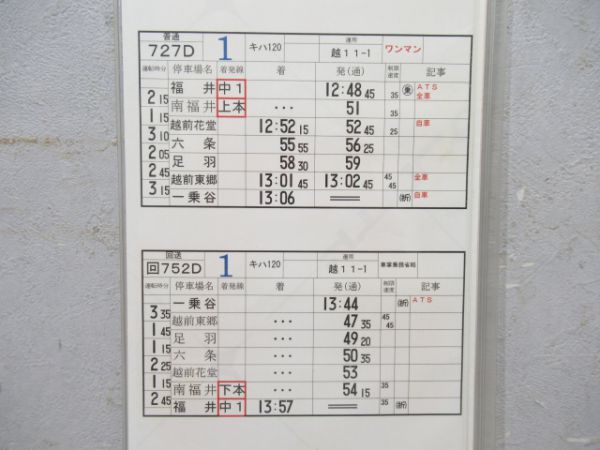 普通 運用
727D 1 キハ120 越11-1 ワンマン
運転時分 停車場名 着発線 着 発(通) 制限速度 記事
福井 中1 12:48 45 ATS 全車
2 15
南福井 上本 ・・・ 51 35
1 15
越前花堂 12:52 15 52 45 25 自車
3 10
六条 55 55 56 25
2 05
足羽 58 30 59
2 45
越前東郷 13:01 45 13:02 45 45 45 全車
3 15
一乗谷 13:06 ═ (折) 自車
回送 運用
回752D 1 キハ120 越11-1 車掌乗務省略
運転時分 停車場名 着発線 着 発(通) 制限速度 記事
一乗谷 13:44 (折) ATS
3 35
越前東郷 ・・・ 47 35 45 45
1 45
足羽 ・・・ 49 20
1 15
六条 ・・・ 50 35
2 25
越前花堂 ・・・ 53
1 15
南福井 下本 ・・・ 54 15 35
2 45
福井 中1 13:57 ═ 35 (折)